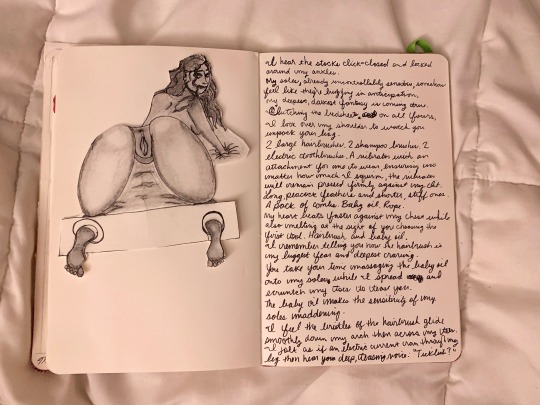 I hear the stocks click-closed and locked
around my ankles.
My soles, already uncontrollably sensitive, somehow
feel like they're buzzing in anticipation.
My deepest, darkest fantasy is coming true.
Clutching the bedsheet, and on all fours,
I look over my shoulder to watch you
unpack your bag.
2 large hairbrushes. 2 shampoo brushes. 2
electric toothbrushes. A vibrator with an
attachment for me to wear ensuring no
matter how much I squirm, the vibrator
will remain pressed firmly against my clit.
Long, peacock feathers and shorter, stiff ones.
A pack of combs. Baby oil. Rope.
My heart beats faster against my chest while
also melting at the sight of you choosing the
first tool. Hairbrush and baby oil.
I remember telling you how the hairbrush is
my biggest fear and deepest craving.
You take your time massaging the baby oil
onto my soles while I spread and
scrunch my toes to tease you.
The baby oil makes the sensitivity of my
soles maddening.
I feel the bristles of the hairbrush glide
smoothly down my arch then across my toes.
I jolt as if an electric current ran through my
leg then hear your deep, teasing voice: "Ticklish?"